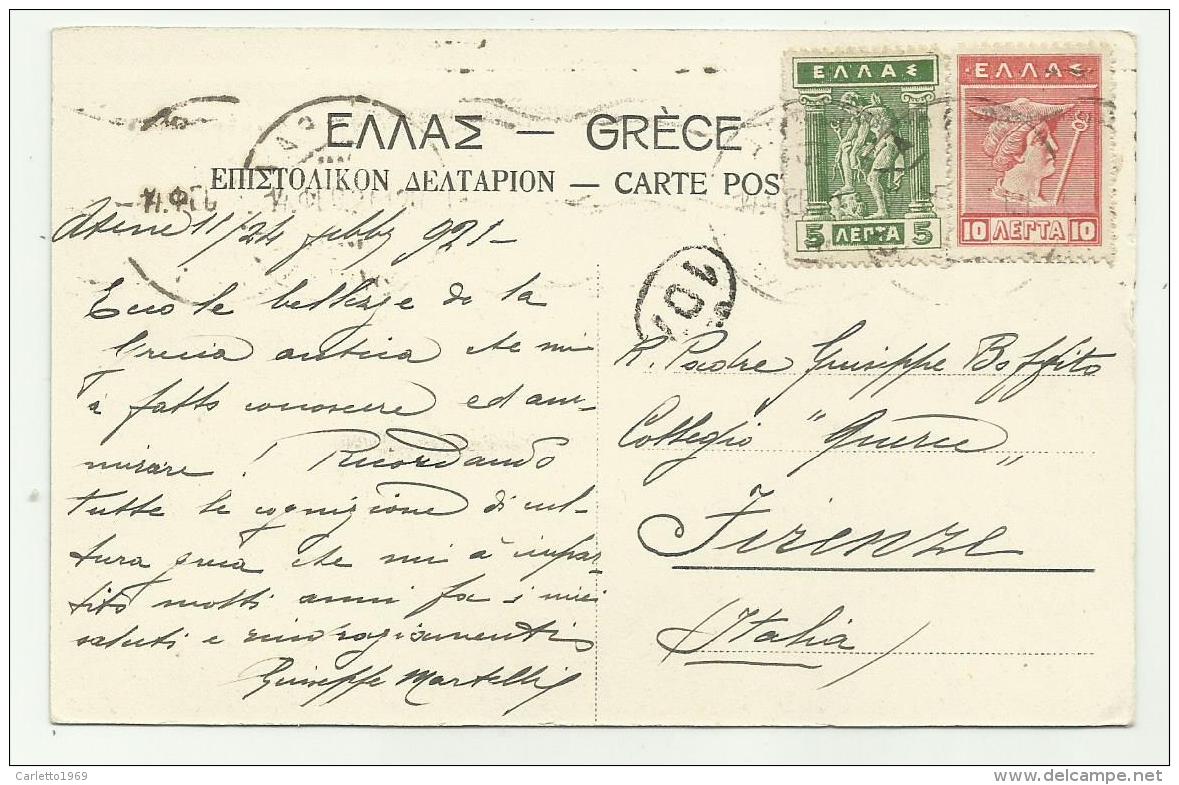 ΕΛΛΑΣ — GRÈCE
ΕΠΙΣΤΟΛΙΚΟΝ ΔΕΛΤΑΡΙΟΝ — CARTE POS
ΕΛΛΑΣ
5 ΛΕΠΤΑ 5
ΕΛΛΑΣ
10 ΛΕΠΤΑ 10
101
Atene 11/24 febb 921-
Ecco le bellezze de la
Grecia antica che mi
à fatto conoscere ed am-
mirare! Ricordando
tutte le cognizione di cul-
tura greca che mi à impar-
tito molti anni fa i miei
saluti e ringraziamenti
Giuseppe Martelli
R. Padre Giuseppe Boffito
Collegio "Querce"
Firenze
(Italia)
Carletto1969
www.delcampe.net